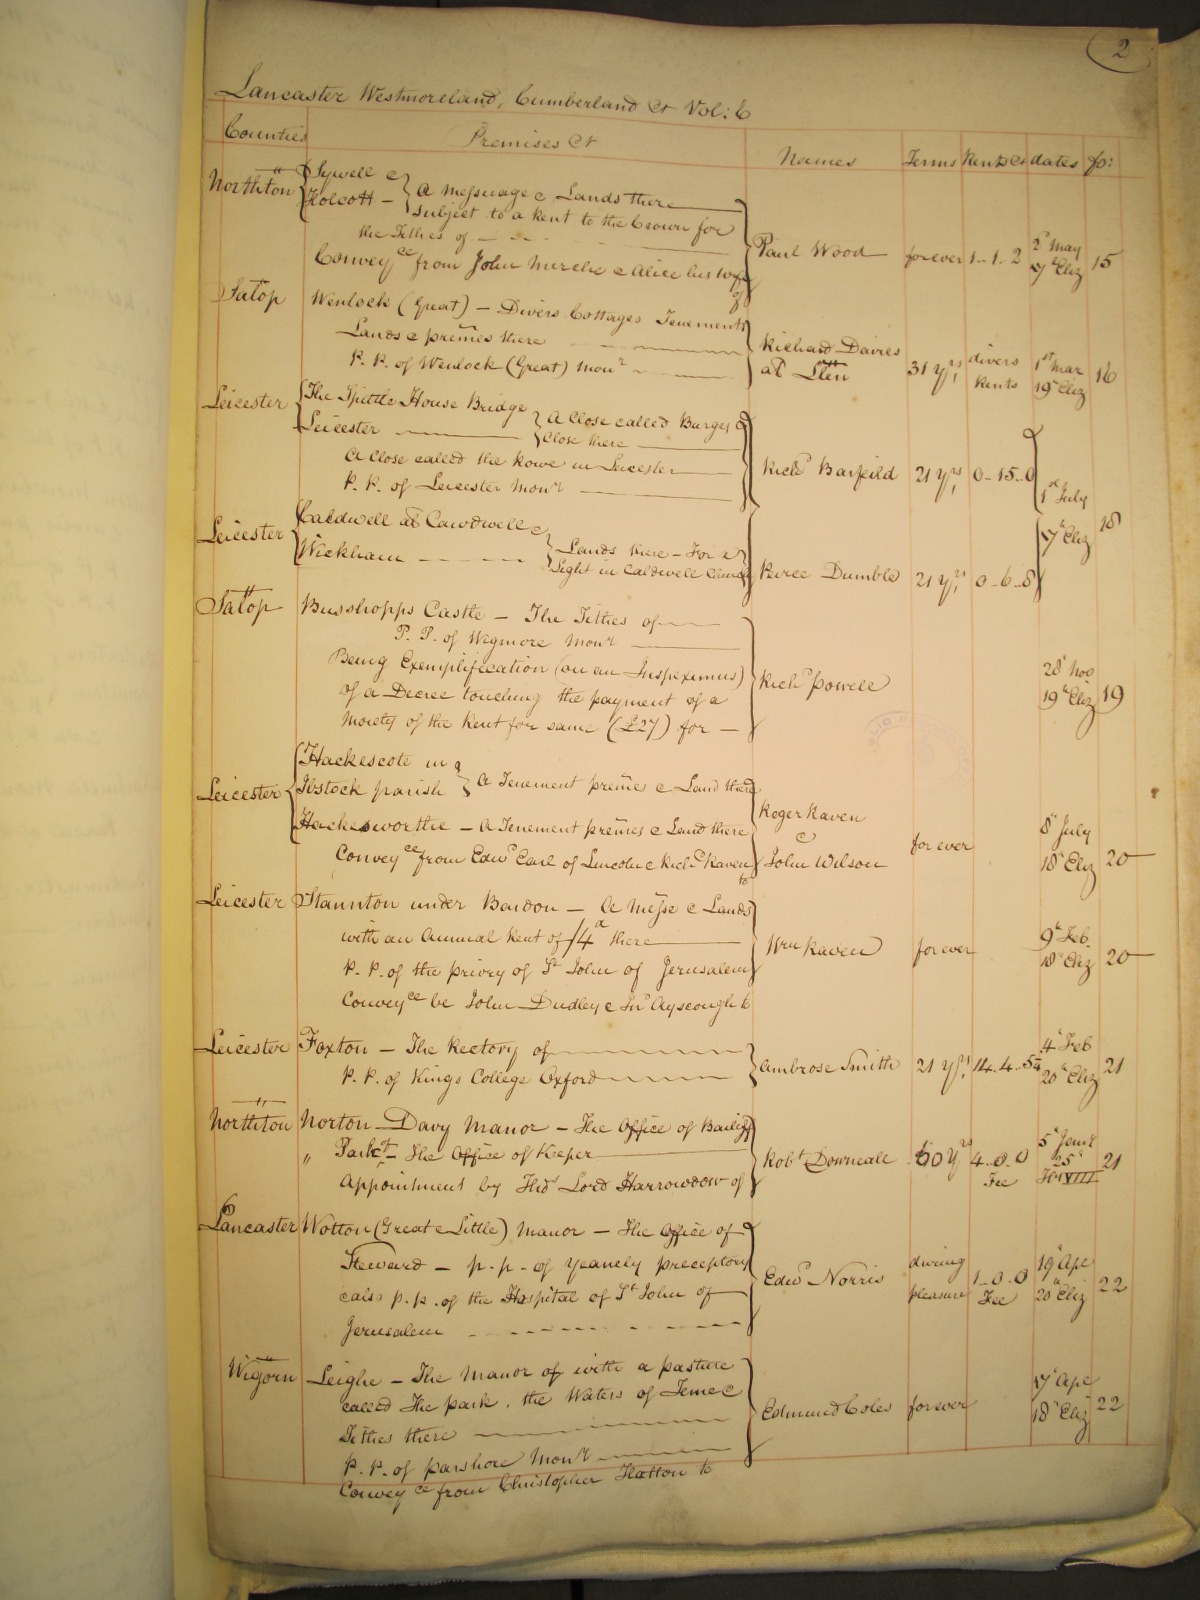 2
Lancaster Westmoreland, Cumberland &c Vol: 6
Counties Premises &c Names Terms Rents &c dates fo:
Northton Sywell &
Holcott — A Messuage & Lands there
subject to a Rent to the Crown for
the Tithes of
Convey ce from John & Alice his wife
Paul Wood for ever 1..1..2 2d May 7th Eliz 15
Salop Wenlock (Great) — Divers Cottages Tenements
Lands & premes there
P. P. of Wenlock (Great) Monr
Richard Davies
at Llen 31 yrs divers rents 1st Mar 19th Eliz 16
Leicester The Spittle House Bridge
Leicester — A Close called Burges
Close there
A Close called the Rowe in Leicester
P. P. of Leicester Monr
Richd Barfeild 21 yrs 0..15..0
1st July
17th Eliz 18
Leicester Caldwell at Cawdwell &
Wickham — Lands there — For a
Light in Caldwell Church
Peirce Dumble 21 yrs 0..6..8
Salop Busshopps Castle — The Tithes of
P. P. of Wigmore Monr
Being Exemplification (on an Inspeximus)
of a Decree touching the payment of a
Moiety of the Rent for same (£27) for —
Richd Powell 28th Nov 19th Eliz 19
Leicester Hackescote in
Ibstock parish A Tenement premes & Land there
Hackesworthe — A Tenement premes & Land there
Convey ce from Edwd Earl of Lincoln & Richd Raven
to
Roger Raven
&
John Wilson for ever 8th July 18th Eliz 20
Leicester Stannton under Bardon — A Messe & Lands
with an Annual Rent of /4d there
P. P. of the priory of St John of Jerusalem
Convey ce be John Dudley & Jno Ayscough to
Wm Raven for ever 9th Feb. 18th Eliz 20
Leicester Foxton — The Rectory of
P. P. of Kings College Oxford
Ambrose Smith 21 yrs 14..4..5¼ 4th Feb 20th Eliz 21
Northton Norton Davy Manor — The Office of Bailiff
„ Park — The Office of Keper
Appointment by Lord Harrowdow of
Robt Downeale 60 yrs 4..0..0 Fee 5th 25th Hen VIII 21
Lancaster Wotton (Great & Little) Manor — The Office of
Steward — p. p. of Yeanely preceptory
& also p. p. of the Hospital of St John of
Jerusalem
Edwd Norris during pleasure 1..0..0 Fee 19th Apl 20th Eliz 22
Wigorn Leighe — The Manor of with a pasture
called The park, the Waters of Teme &
Tithes there
P. P. of parshore Monr
Convey ce from Christopher Hatton to
Edmund Coles for ever 17th Apl 18th Eliz 22